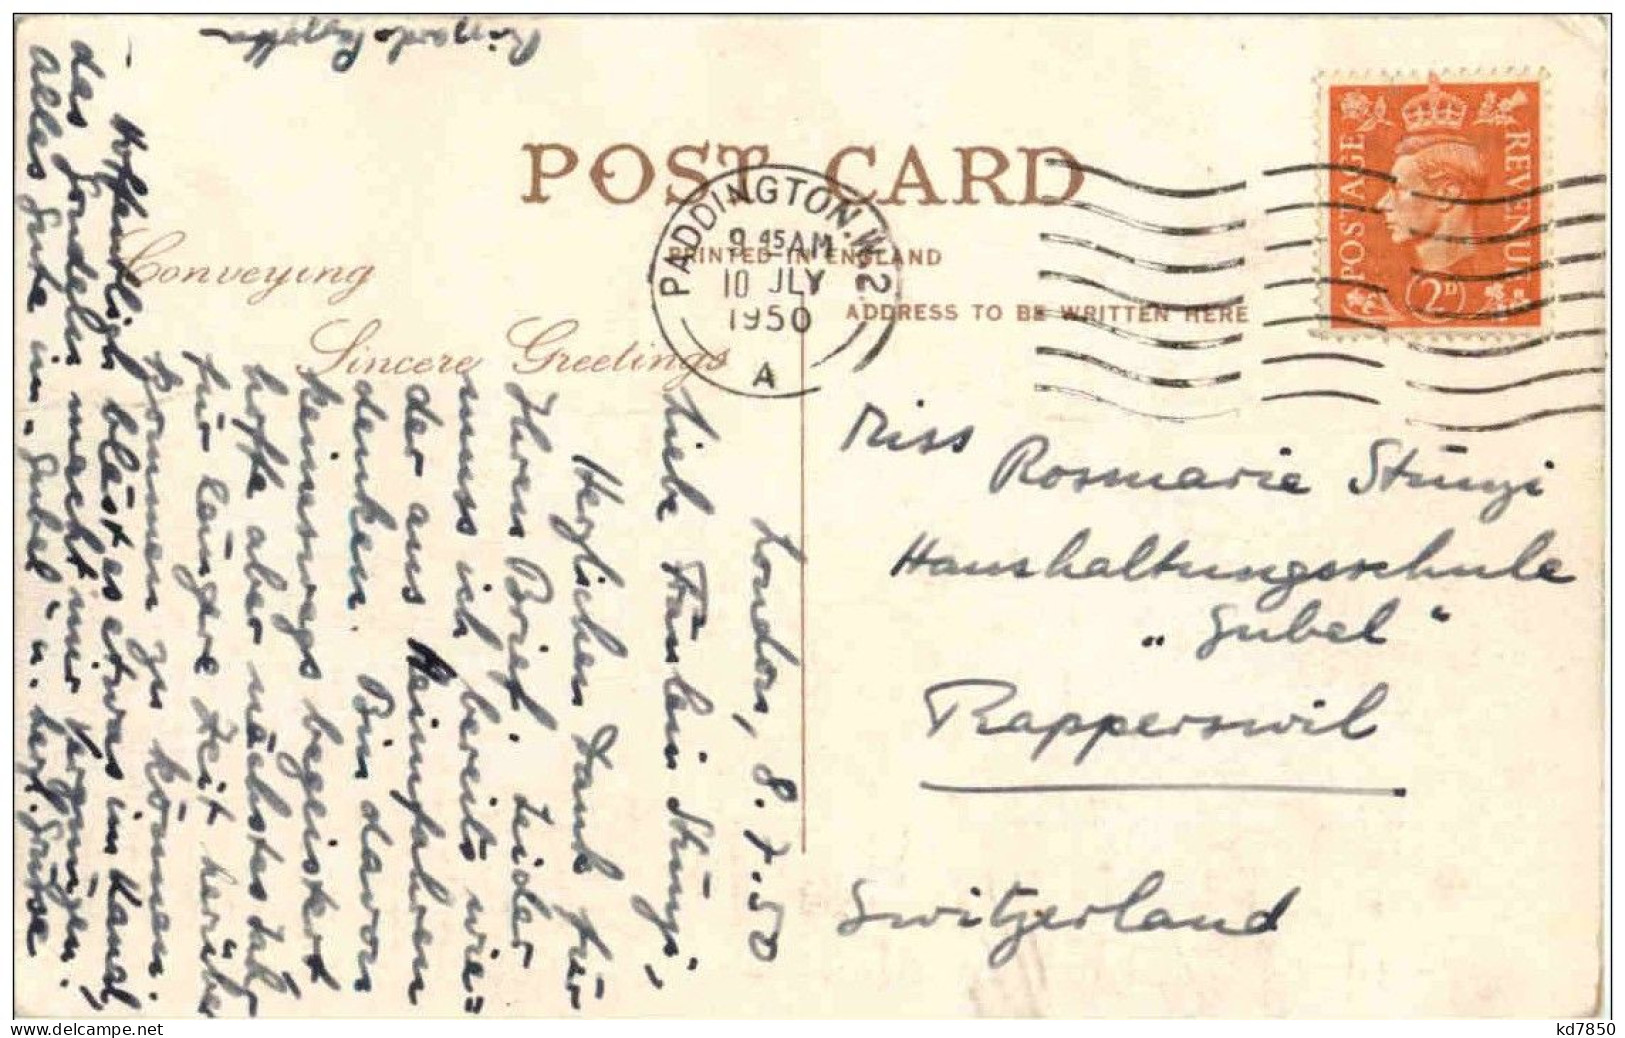 POST CARD
PADDINGTON. W.2.
9 45 AM
10 JLY
1950
A
PRINTED IN ENGLAND
ADDRESS TO BE WRITTEN HERE
POSTAGE
REVENUE
2D
Conveying
Sincere Greetings
Miss
Rosmarie Stünzi
Haushaltungsschule
„Gubel“
Rapperswil
Switzerland
London, 8.7.50
Liebe Fräulein Stünzi,
Herzlichen Dank für
Ihren Brief. Leider
muss ich bereits wie=
der ans Heimfahren
denken. Bin davon
keineswegs begeistert
hoffe aber nächstes Jahr
für längere Zeit herüber
kommen zu können.
- Hoffentlich bläst es etwas im Kanal,
das Gondeln macht mir Vergnügen.
alles Gute im „Gubel“ u. herzl. Grüsse
kd7850